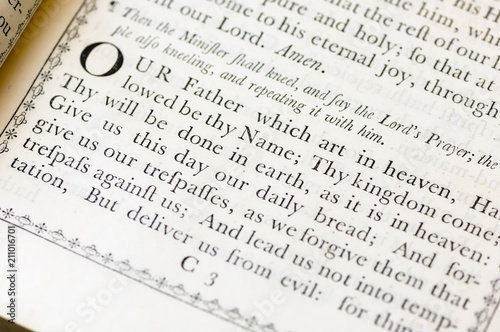 ate him, wh
pure and holy; so that at
that the rest of our l
ent our Lord. Amen.
come to his eternal joy, through
Then the Miniſter ſhall kneel, and ſay the Lord's Prayer; the
ple alſo kneeling, and repeating it with him.
OUR Father which art in heaven, Ha
lowed be thy Name; Thy kingdom come:
Thy will be done in earth, as it is in heaven:
Give us this day our daily bread; And for-
give us our treſpaſſes, as we forgive them that
treſpaſs againſt us; And lead us not into temp
tation, But deliver us from evil: for thi
C 3
211016701